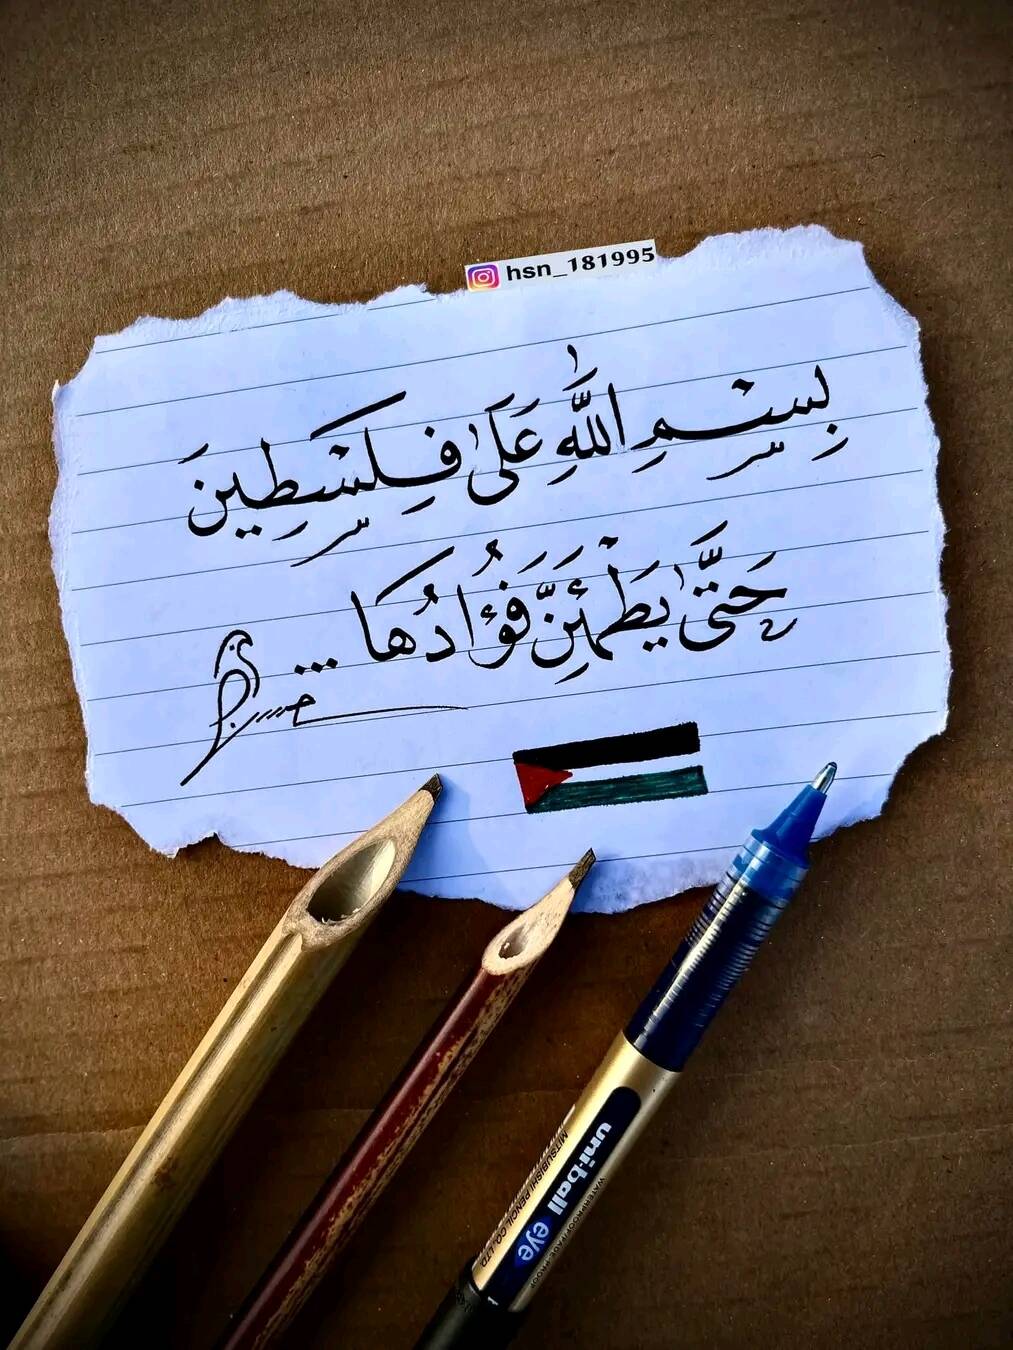 hsn_181995
بِسْمِ اللَّهِ عَلَىٰ فِلِسْطِينَ
حَتَّىٰ يَطْمَئِنَّ فُؤَادُهَا ...
uni-ball eye
MITSUBISHI PENCIL CO. LTD.
WATERPROOF/FADE-PROOF